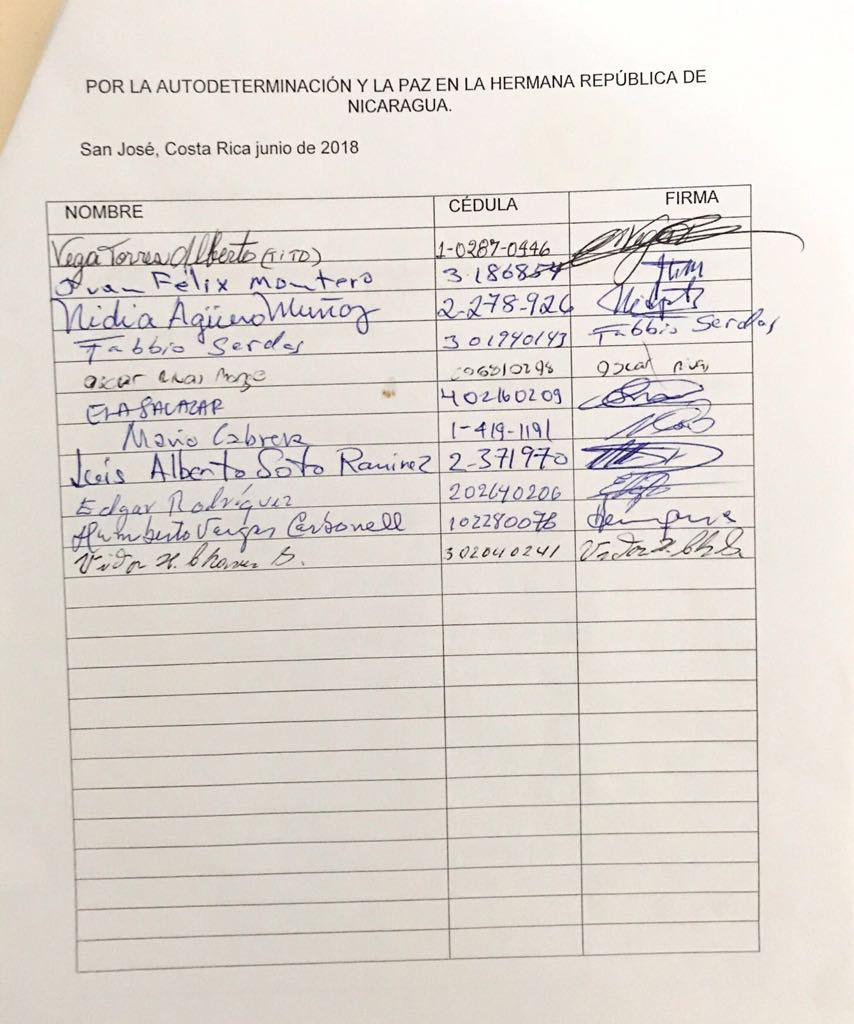 POR LA AUTODETERMINACIÓN Y LA PAZ EN LA HERMANA REPÚBLICA DE
NICARAGUA.
San José, Costa Rica junio de 2018
NOMBRE CÉDULA FIRMA
Vega Torres Alberto (TITO) 1-0287-0446
Félix Montero 3.186854
Nidia Agüero Muñoz 2-278-926
Fabbio Serdas 301940143 Fabbio Serdas
oscar oscar
SALAZAR 402160209
Mario Cabrera 1-419-1191
Luis Alberto Soto Ramirez 2-371970
Edgar Rodríguez 202640206
Humberto Vargas Carbonell 102280076
302040241